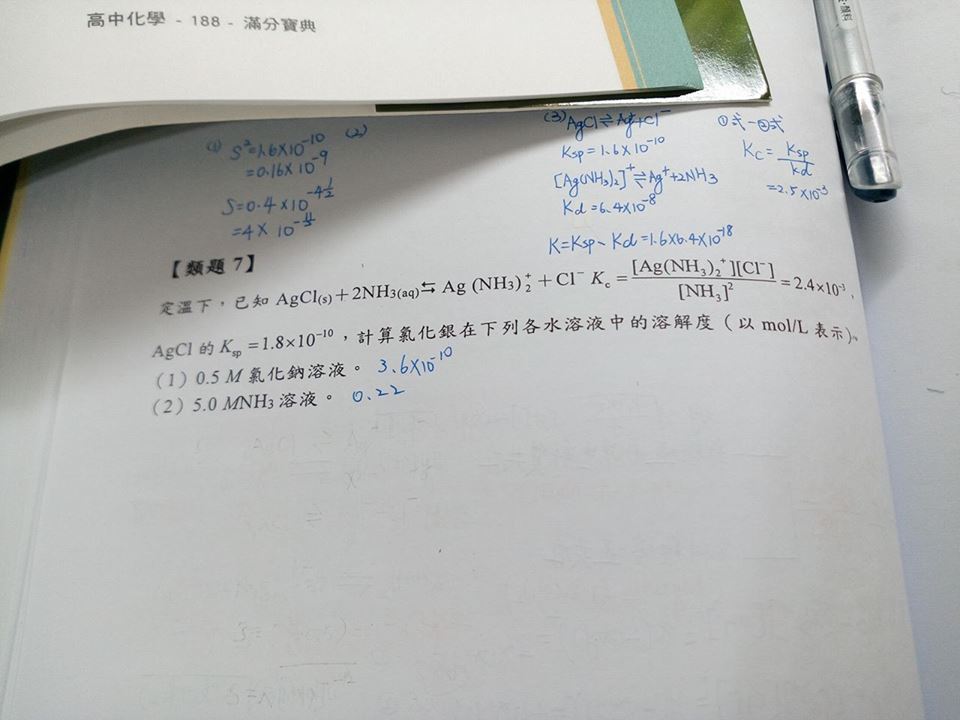 高中化學 - 188 - 滿分寶典
(1) S²=1.6×10⁻¹⁰
=0.16×10⁻⁹
S=0.4×10
=4×10
(2)
(3) AgCl⇌Ag⁺+Cl⁻
Ksp=1.6×10⁻¹⁰
[Ag(NH3)2]⁺⇌Ag⁺+2NH3
Kd=6.4×10⁻⁸
K=Ksp-Kd=1.6×6.4×10⁻¹⁸
①式-②式
Kc=Ksp/kd
=2.5×10⁻³
【類題 7】
定溫下,已知 AgCl(s)+2NH3(aq)⇆Ag (NH3)₂⁺+Cl⁻ Kc=[Ag(NH3)₂⁺][Cl⁻]/[NH3]²=2.4×10⁻³,
AgCl 的 Ksp=1.8×10⁻¹⁰,計算氯化銀在下列各水溶液中的溶解度(以 mol/L 表示)。
(1) 0.5 M 氯化鈉溶液。 3.6×10⁻¹⁰
(2) 5.0 MNH3 溶液。 0.22